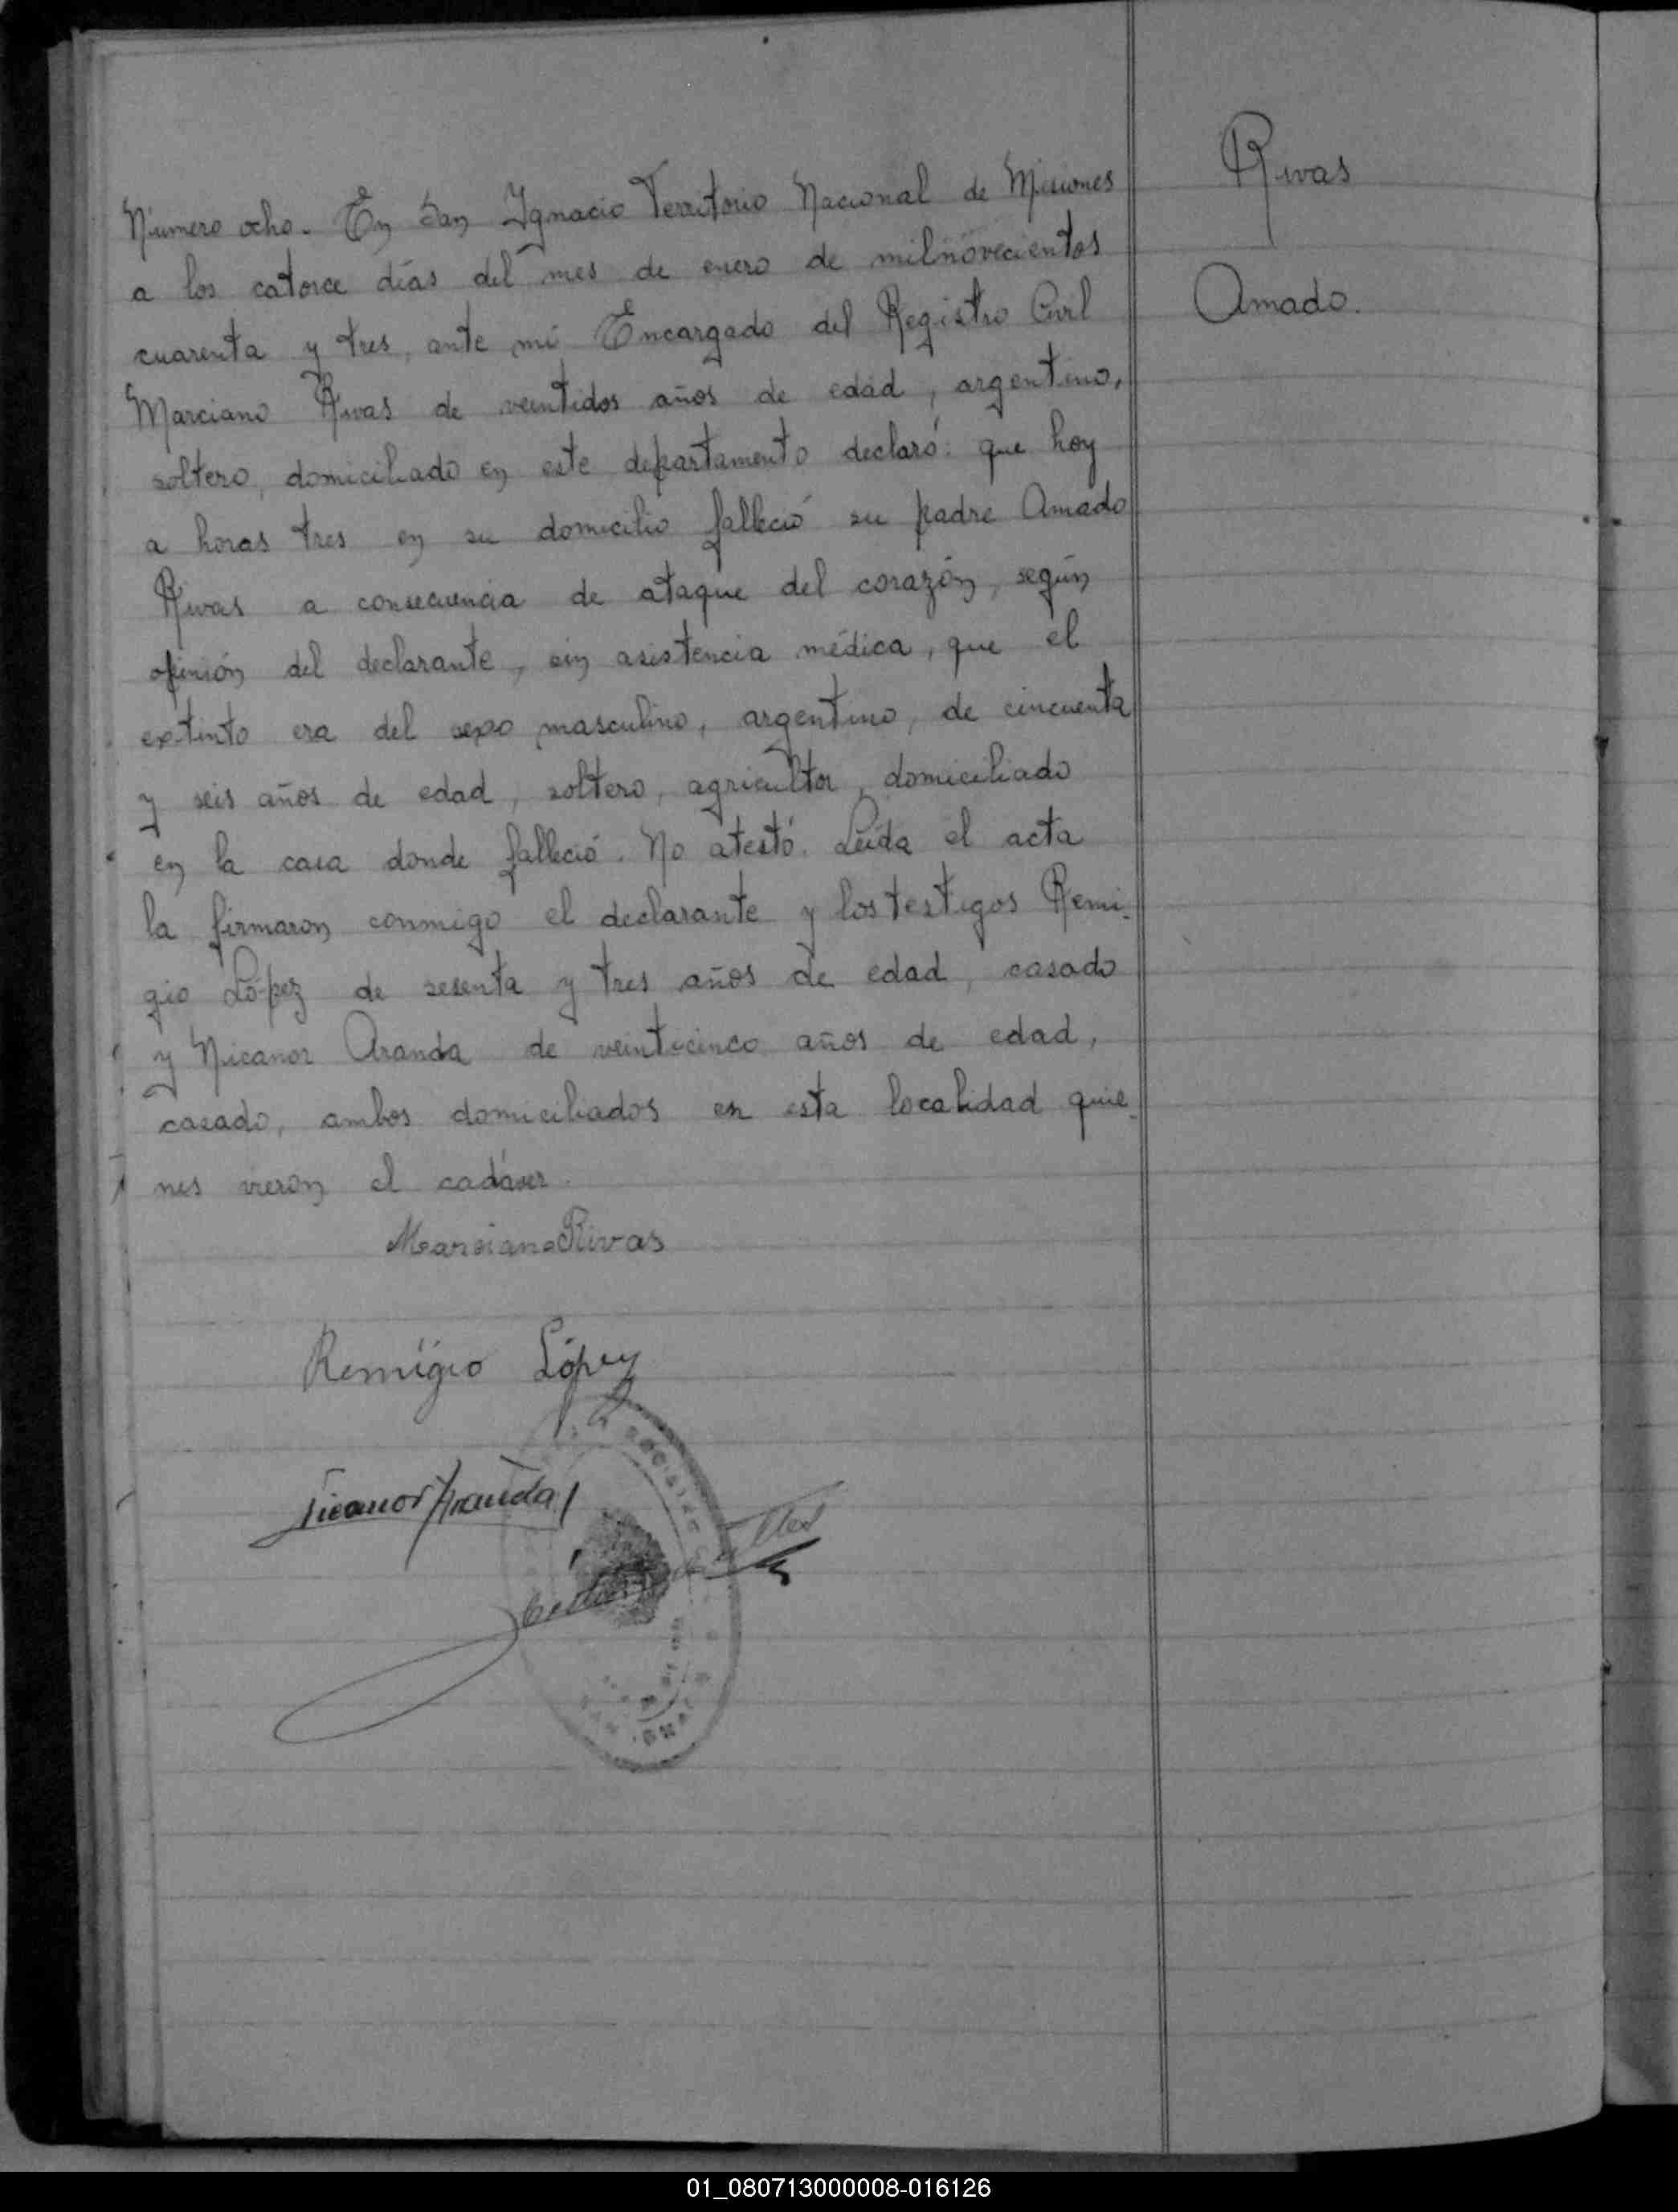 Número ocho. En San Ygnacio Territorio Nacional de Misiones
a los catorce días del mes de enero de milnovecientos
cuarenta y tres, ante mí Encargado del Registro Civil
Marciano Rivas de veintidos años de edad, argentino,
soltero, domiciliado en este departamento declaró: que hoy
a horas tres en su domicilio falleció su padre Amado
Rivas a consecuencia de ataque del corazón, según
opinión del declarante, sin asistencia médica, que el
extinto era del sexo masculino, argentino, de cincuenta
y seis años de edad, soltero, agricultor, domiciliado
en la casa donde falleció. No atestó. Leída el acta
la firmaron conmigo el declarante y los testigos Remi-
gio López de sesenta y tres años de edad, casado
y Nicanor Aranda de veinticinco años de edad,
casado, ambos domiciliados en esta localidad quie-
nes vieron el cadáver.
Marciano Rivas
Remigio López
Nicanor Aranda
Rivas
Amado.
01_080713000008-016126